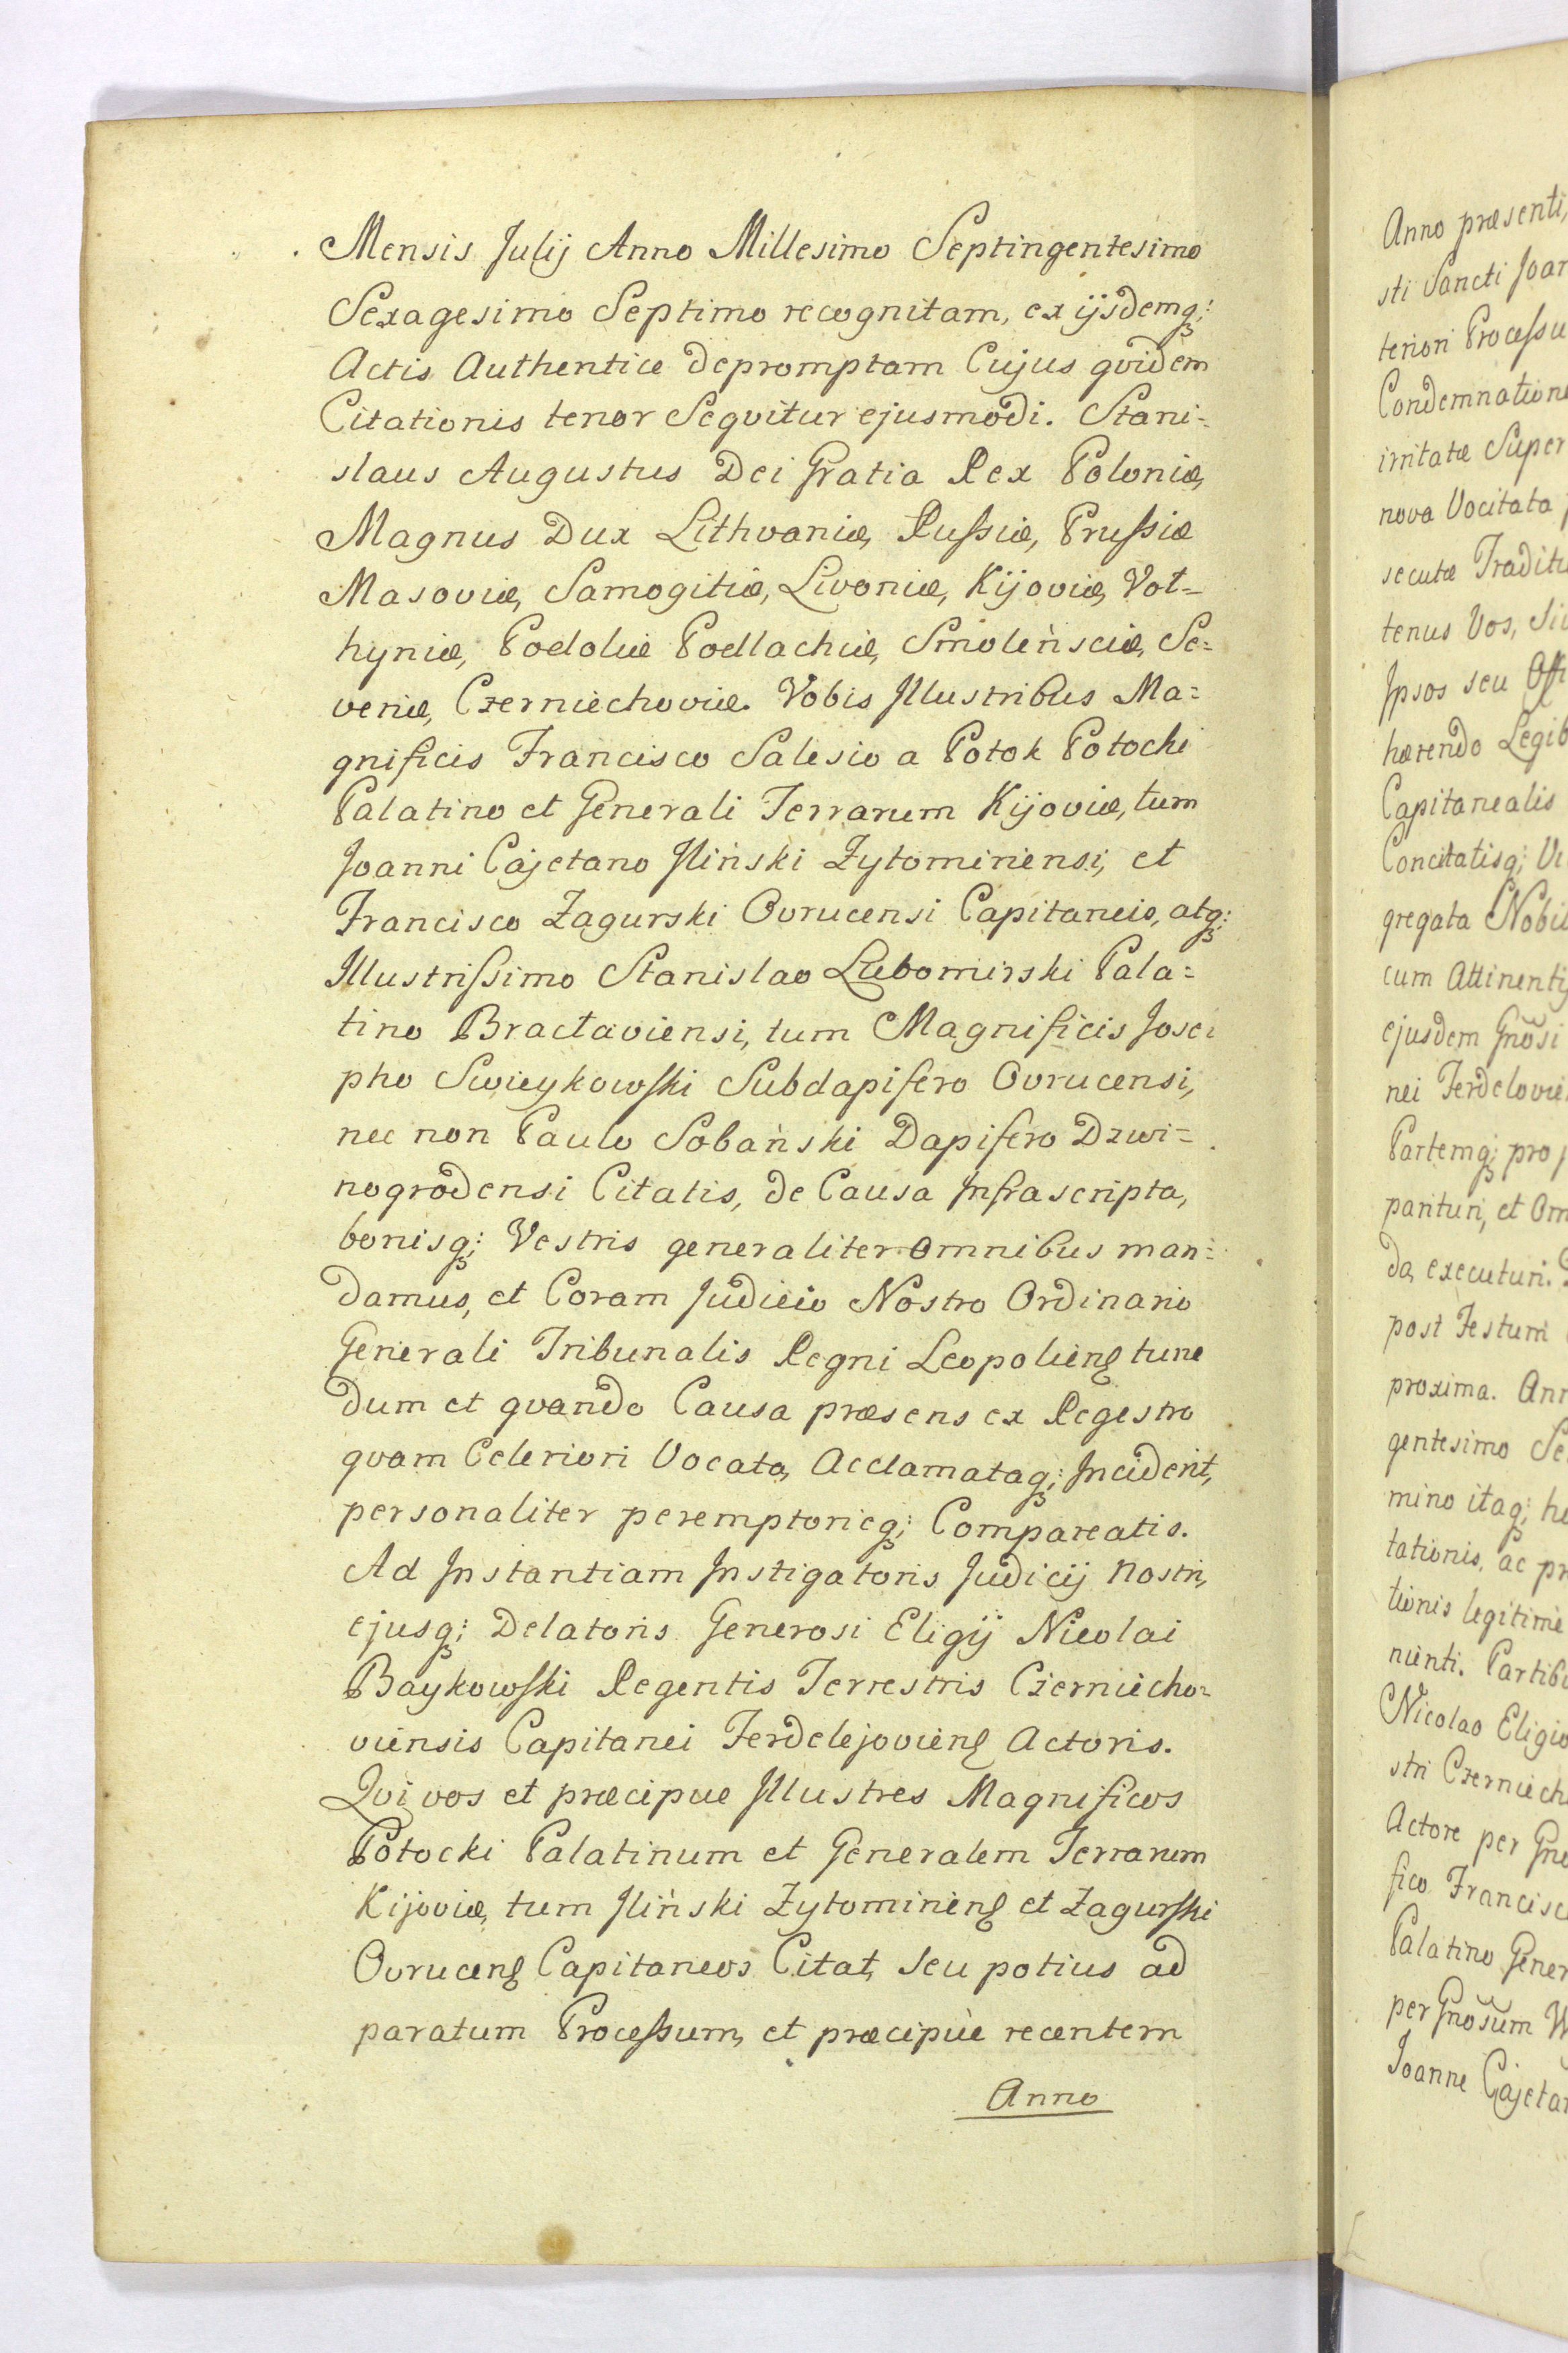 Mensis Julij Anno Millesimo Septingentesimo
Sexagesimo Septimo recognitam, ex ijsdemq;
Actis Authentice depromptam Cujus qvidem
Citationis tenor Seqvitur ejusmodi. Stani=
slaus Augustus Dei Gratia Rex Poloniæ,
Magnus Dux Lithvaniæ, Russiæ, Prussiæ
Masoviæ, Samogitiæ, Livoniæ, Kijoviæ, Voł=
hyniæ, Podoliæ Podlachiæ, Smoleńsciæ, Se=
veriæ, Czerniechoviæ. Vobis Illustribus Ma=
gnificis Francisco Salesio a Potok Potocki
Palatino et Generali Terrarum Kijoviæ, tum
Joanni Cajetano Iliński Zytomiriensi, et
Francisco Zagurski Ovrucensi Capitaneis, atq;
Illustrissimo Stanislao Lubomirski Pala=
tino Bracłaviensi, tum Magnificis Jose=
pho Swieykowski Subdapifero Ovrucensi,
nec non Paulo Sobański Dapifero Dzwi=
nogrodensi Citatis, de Causa Infrascripta,
bonisq; Vestris generaliter omnibus man=
damus, et Coram Judicio Nostro Ordinario
Generali Tribunalis Regni Leopolien̄s tunc
dum et qvando Causa præsens ex Regestro
qvam Celeriori Vocata, Acclamataq; Inciderit,
personaliter peremptorieq; Compareatis.
Ad Instantiam Instigatoris Judicij Nostri,
ejusq; Delatoris Generosi Eligij Nicolai
Baykowski Regentis Terrestris Czerniecho=
viensis Capitanei Ferdelejovien̄s Actoris.
Qvi vos et præcipue Illustres Magnificos
Potocki Palatinum et Generalem Terrarum
Kijoviæ, tum Iliński Zytomirien̄s et Zagurski
Ovrucen̄s Capitaneos Citat, seu potius ad
paratum Processum, et præcipuè recentem
Anno
Anno præsenti,
sti Sancti Joan
teriori Processu
Condemnatione
irritatæ Super
nova Vocitata
secutæ Traditu
tenus Vos, Si
Ipsos seu Offi
hærendo Legib
Capitanealis
Concitatisq; Vi
gregata Nobil
cum Attinentij
ejusdem Gnōsi
nei Ferdelovie
Partemq; pro
parituri, et Om
da, executuri.
post Festum
proxima. Ann
gentesimo Se
mino itaq; h
tationis, ac pr
tionis legitime
nienti. Partib
Nicolao Eligio
stri Czerniech
Actore per Gno
fico Francisc
Palatino Gener
per Gnōsum W
Joanne Cajetan